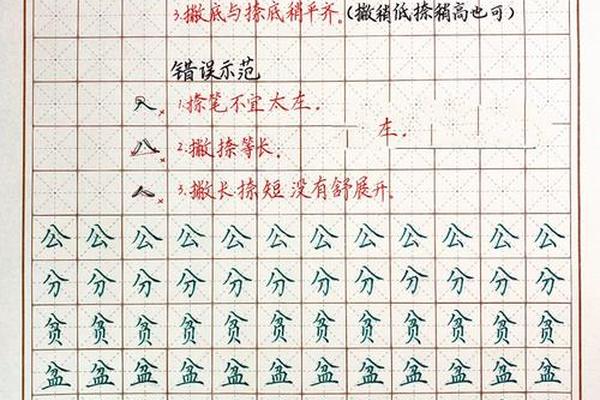 3.撇底与捺底稍平齐。(撇稍低捺稍高也可)
错误示范
1.捺笔不宜太左.
左.
2.撇捺等长.
3.撇长捺短没有舒展开.
公公公公公公公公公公公公
分分分分分分分分分分分分
贫贫贫贫贫贫贫贫贫贫贫贫
盆盆盆盆盆盆盆盆盆盆盆盆